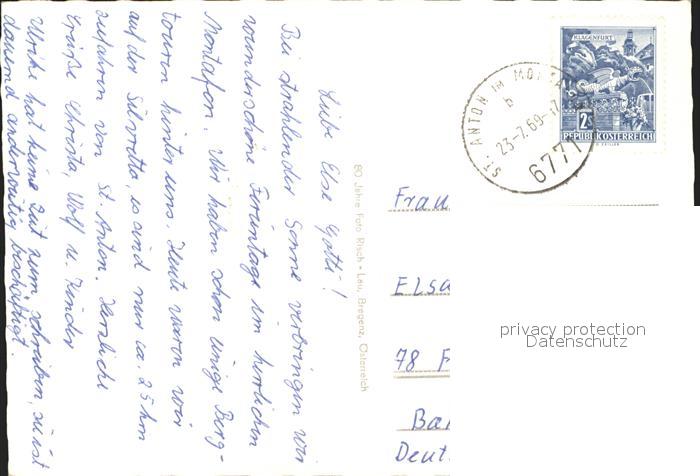 Liebe Else Gotti!
Bei strahlender Sonne verbringen wir
wunderschöne Ferientage im herrlichen
Montafon. Wir haben schon einige Berg-
touren hinter uns. Heute waren wir
auf der Silvretta, es sind nur ca. 25 km
zufahren von St. Anton. Herzliche
Grüße Christa, Wolf u. Kinder
Ulrike hat keine Zeit zum schreiben, sie ist
dauernd anderweitig beschäftigt.
80 Jahre Foto Risch - Lau, Bregenz, Österreich
KLAGENFURT
2S
REPUBLIK ÖSTERREICH
ST. ANTON IM MONTAFON
b
23-7.69-17
6771
Frau
Elsa
78 F
Ba
Deut
privacy protection
Datenschutz